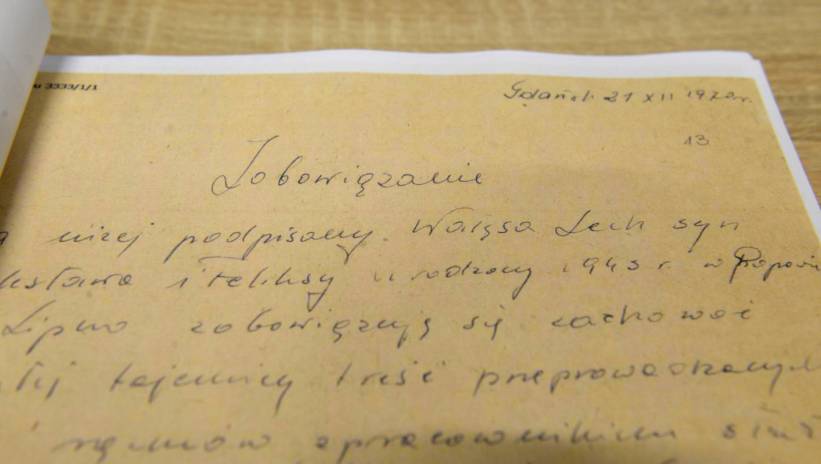 3333/1/1
Gdańsk 21 XII 1970 r.
13
Zobowiązanie
niżej podpisany. Wałęsa Lech syn
i Feliksy urodzony 1943 r. w Popowie
Lipno zobowiązuję się zachować
tajemnicy treść przeprowadzanych
z pracownikiem